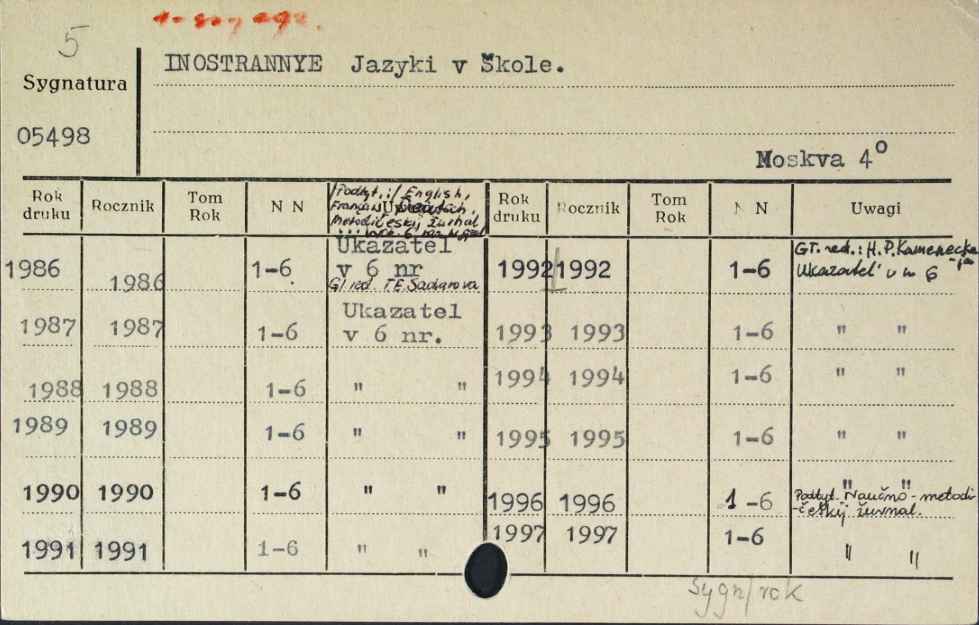 5
Sygnatura
05498
INOSTRANNYE Jazyki v Škole.
Moskva 4°
Rok druku Rocznik Tom Rok N N Rok druku Rocznik Tom Rok N N Uwagi
/Podtyt.:/ English,
Metodičeskij žurnal
1986 1986 1-6 Ukazatel v 6 nr
Gl. red. T.E. Sacharova
1987 1987 1-6 Ukazatel v 6 nr.
1988 1988 1-6 " "
1989 1989 1-6 " "
1990 1990 1-6 " "
1991 1991 1-6 " "
1992 1992 1-6 Gł. red.: N. P. Kamenecka
-ja
Ukazatel' v n 6
1993 1993 1-6 " "
1994 1994 1-6 " "
1995 1995 1-6 " "
1996 1996 1-6 " "
Podtyt. Naučno-metodi-
-českij žurnal.
1997 1997 1-6 " "
sygn/rok